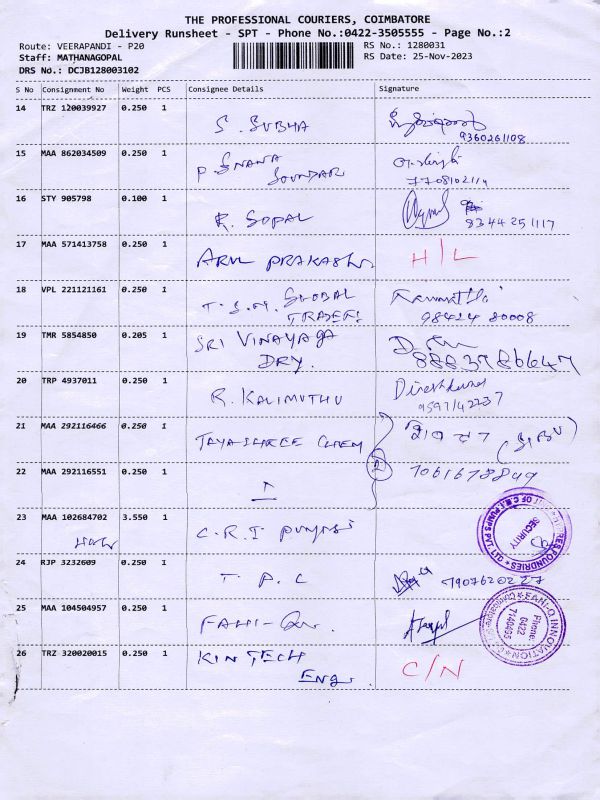 THE PROFESSIONAL COURIERS, COIMBATORE
Delivery Runsheet - SPT - Phone No.:0422-3505555 - Page No.:2
Route: VEERAPANDI - P20
RS No.: 1280031
Staff: MATHANAGOPAL
RS Date: 25-Nov-2023
DRS No.: DCJB128003102
S No Consignment No Weight PCS Consignee Details Signature
14 TRZ 120039927 0.250 1 S. SUBHA
9360261108
15 MAA 862034509 0.250 1 P. GNANA
SOUNDAR
16 STY 905798 0.100 1 R. GOPAL
8344251117
17 MAA 571413758 0.250 1 ARUL PRAKASH H/L
18 VPL 221121161 0.250 1 T.S.M. GLOBAL
98424 80008
19 TMR 5854850 0.205 1 SRI VINAYAGA
DRY.
20 TRP 4937011 0.250 1 R. KALIMUTHU
9597142237
21 MAA 292116466 0.250 1 JAYASHREE CHEM
22 MAA 292116551 0.250 1 2
23 MAA 102684702 3.550 1 C.R.I PUMPS
SECURITY
24 RJP 3232609 0.250 1 T. P. C 7907620227
25 MAA 104504957 0.250 1 FAHI-Q
FAHI-Q INNOVATION
Phone:
0422
7140495
26 TRZ 320020015 0.250 1 KINTECH C/N
Eng.